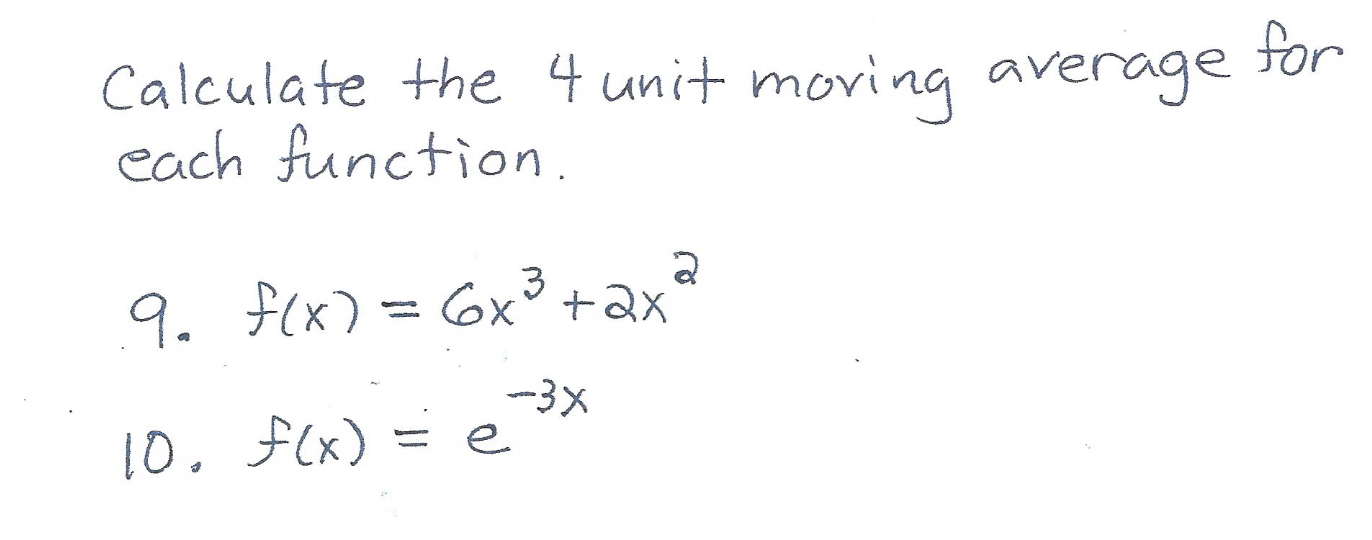 Calculate the 4 unit moving average for
each function.
9. f(x) = 6x³ + 2x²
10. f(x) = e⁻³ˣ